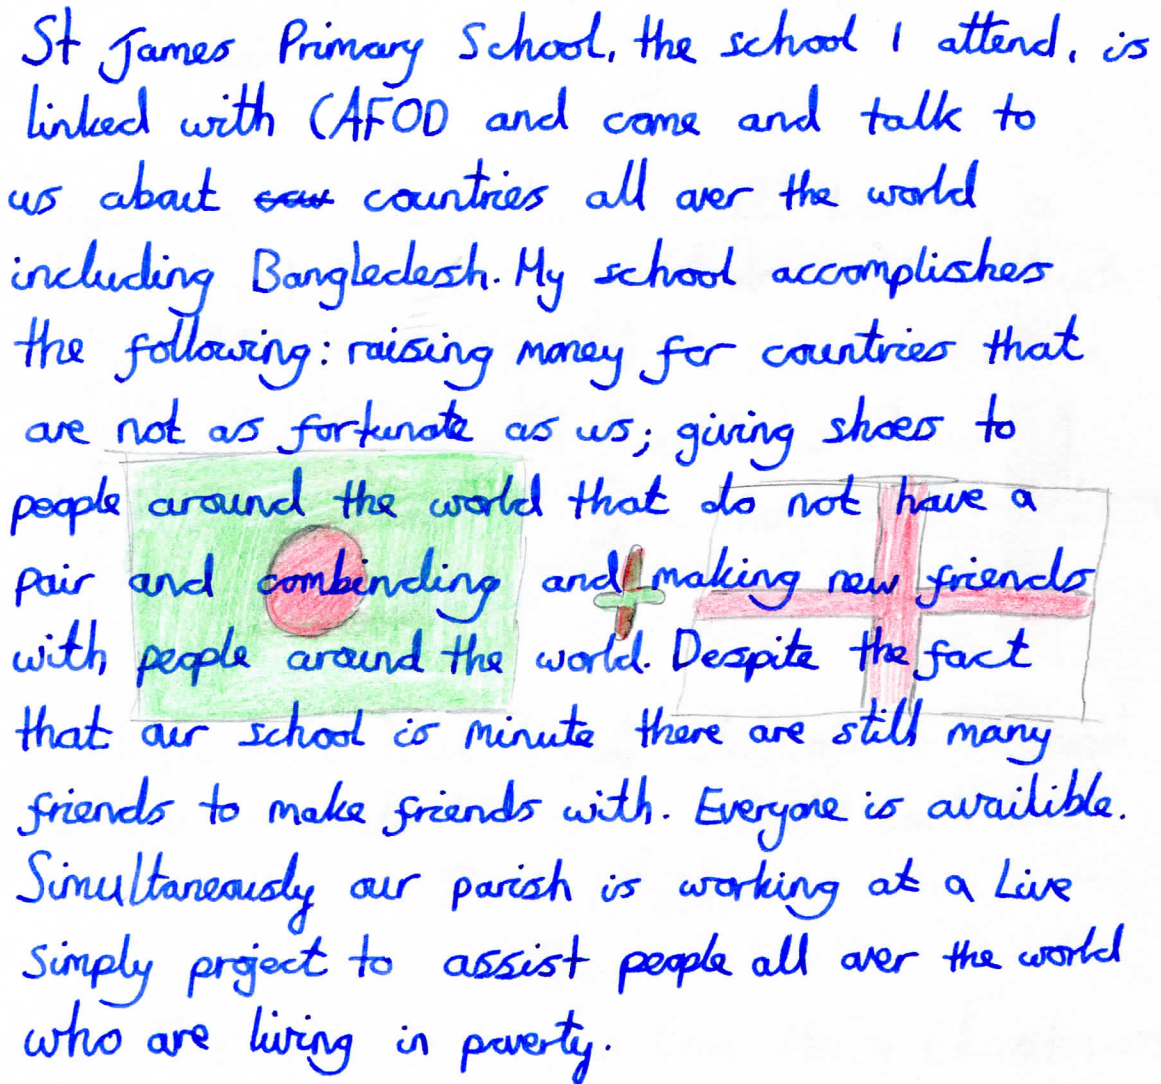 St James Primary School, the school I attend, is
linked with CAFOD and come and talk to
us about cou countries all over the world
including Bangledesh. My school accomplishes
the following: raising money for countries that
are not as fortunate as us; giving shoes to
people around the world that do not have a
pair and combinding and making new friends
with people around the world. Despite the fact
that our school is minute there are still many
friends to make friends with. Everyone is availible.
Simultaneously our parish is working at a Live
Simply project to assist people all over the world
who are living in poverty.